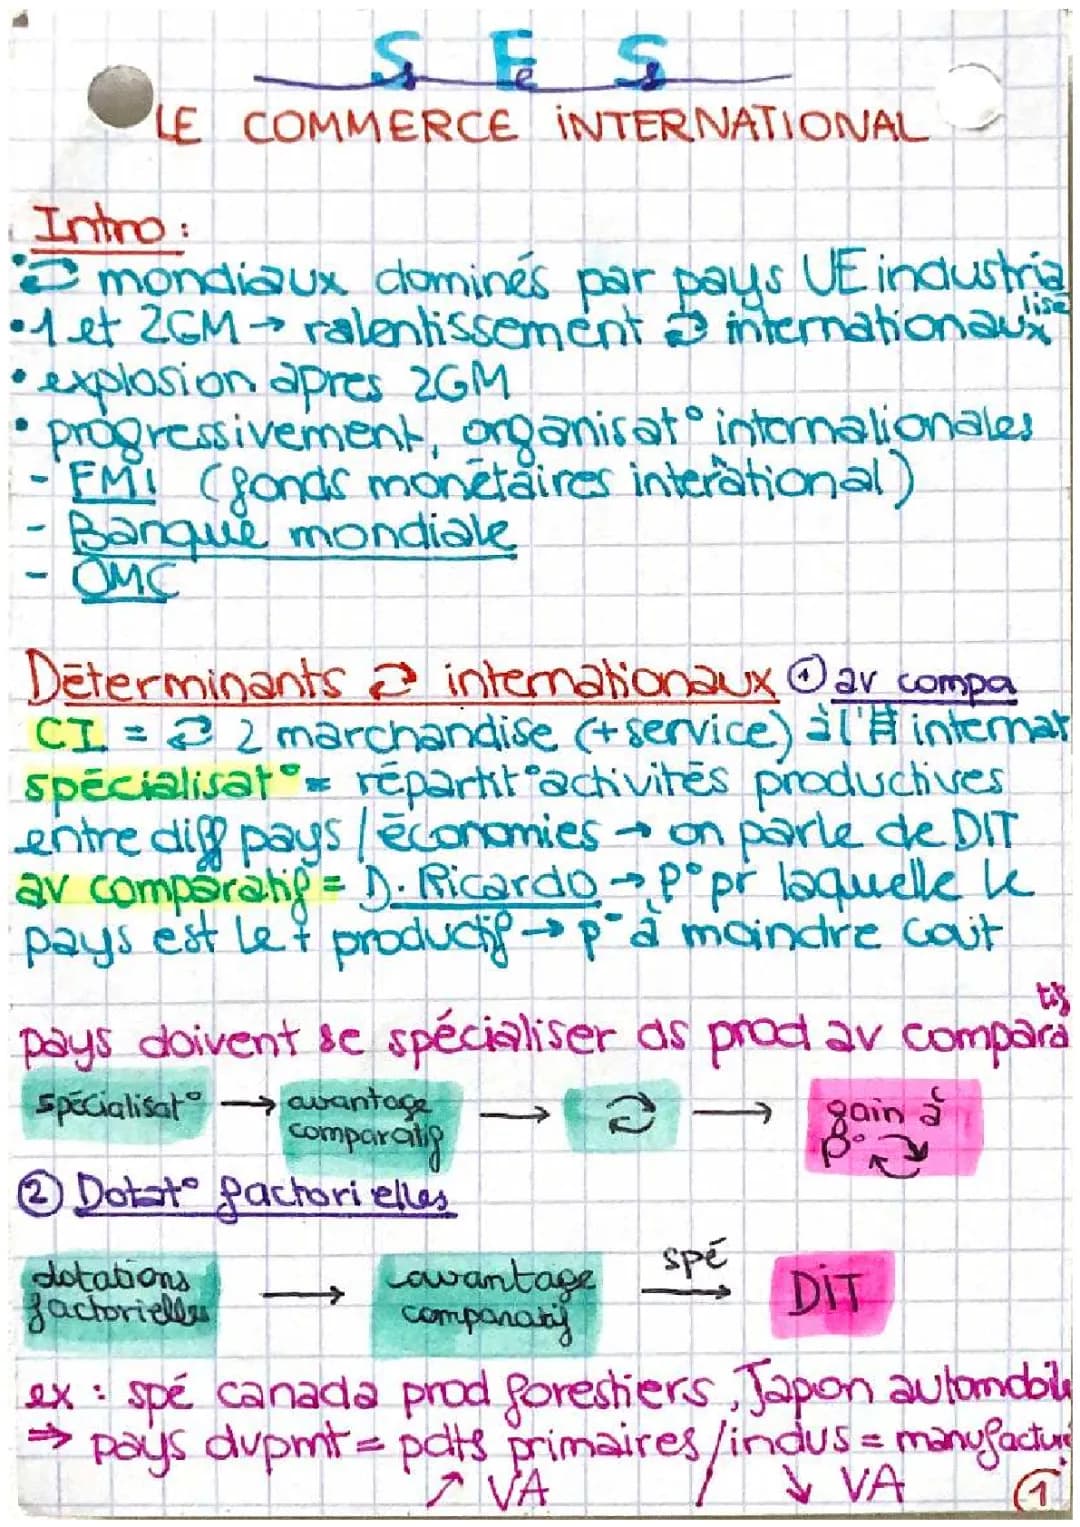 S E S
LE COMMERCE INTERNATIONAL
Intro :
• ⇄ mondiaux dominés par pays UE industrialisé
• 1 et 2GM → ralentissement ⇄ internationaux
• explosion apres 2GM
• progressivement, organisat° internationales
- FMI (fonds monétaires interational)
- Banque mondiale
- OMC
Déterminants ⇄ internationaux ① av compa
CI = ⇄ 2 marchandise (+ service) à l' internat
spécialisat° = répartit° activités productives
entre diff pays / économies → on parle de DIT
av comparatif = D. Ricardo → p° pr laquelle le
pays est le + productif → p° à moindre cout
pays doivent se spécialiser ds prod av comparatif
spécialisat° → avantage comparatif → ⇄ → gain à p° ⇄
② Dotat° factorielles
dotations factorielles → avantage comparatif spé → DIT
ex : spé canada prod forestiers, Japon automobile
⇒ pays dvpmt = pdts primaires / indus = manufacturé
↗ VA / ↘ VA
①